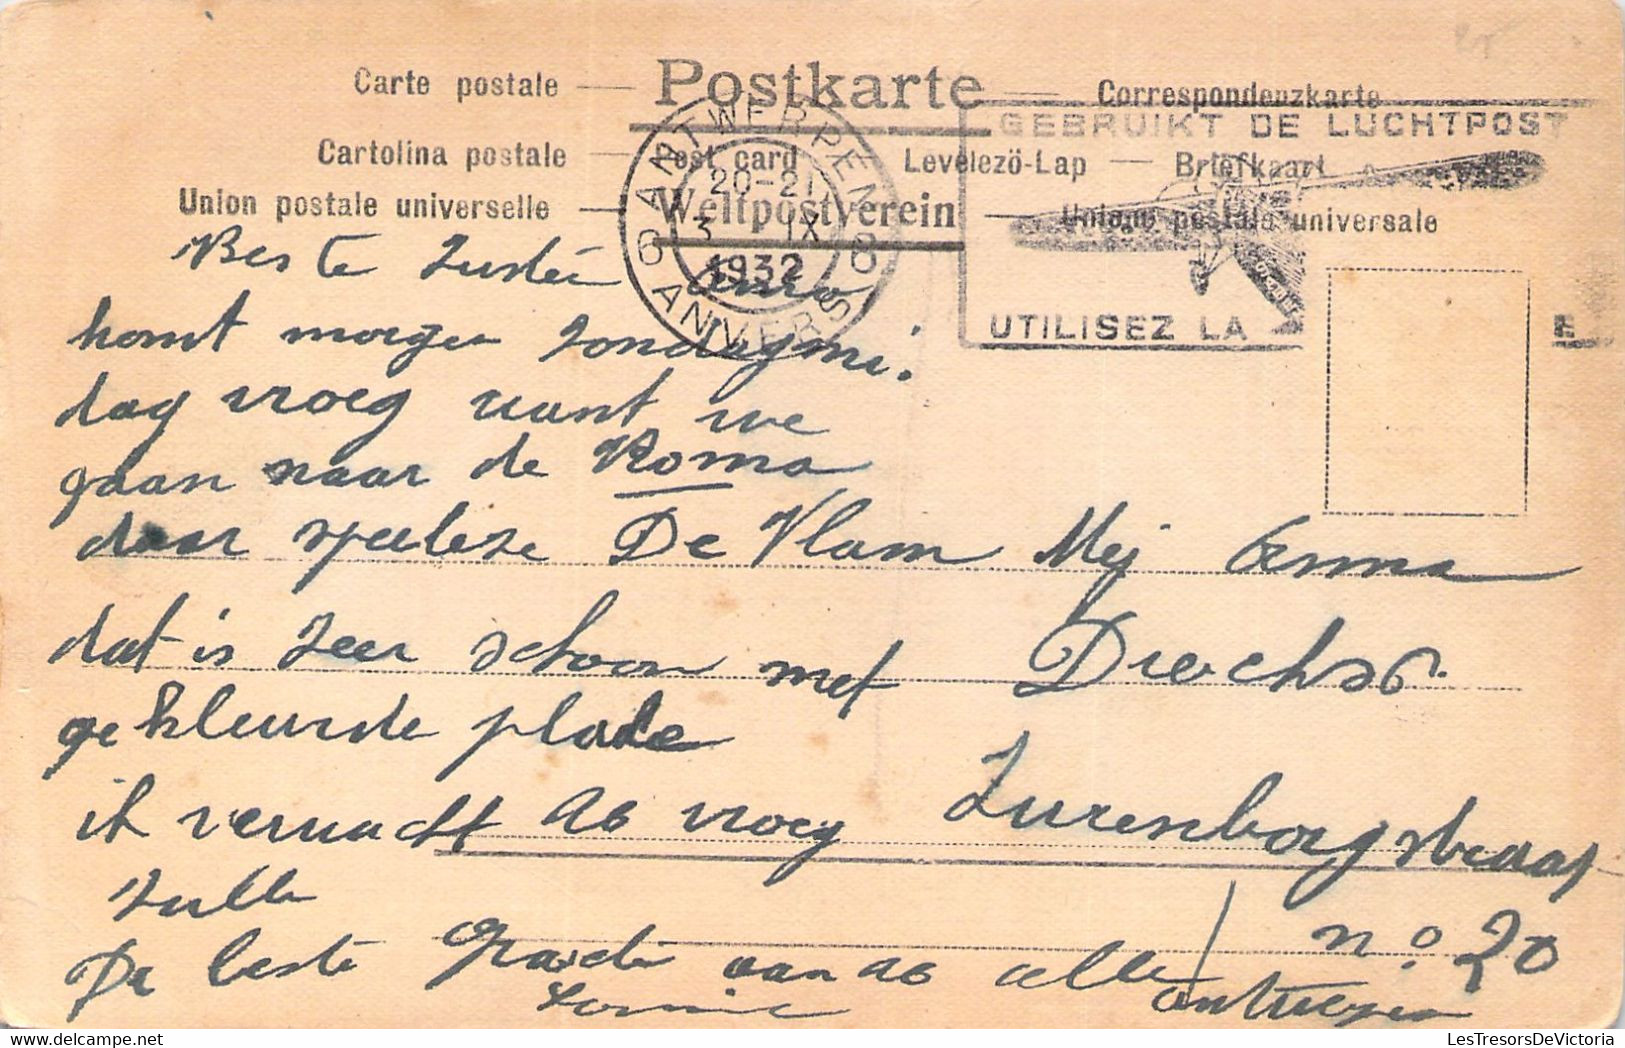 Carte postale — Postkarte — Correspondenzkarte
Cartolina postale — Post card — Levelező-Lap — Briefkaart
Union postale universelle — Weltpostverein — Unione postale universale
ANTWERPEN 6
20-21
3 IX
1932
6 ANVERS
GEBRUIKT DE LUCHTPOST
UTILISEZ LA E
Beste Zuster Anna
komt morgen zondagmi.
dag vroeg want we
gaan naar de Roma
daar speelese De Vlam
dat is zeer schoon met
gekleurde plade
ik verwacht as vroeg
zulle
De beste Groeten van as alle
Louise
Mej Anna
Zurenborgstraat
n.o 20
Antwerpen
LesTresorsDeVictoria.com